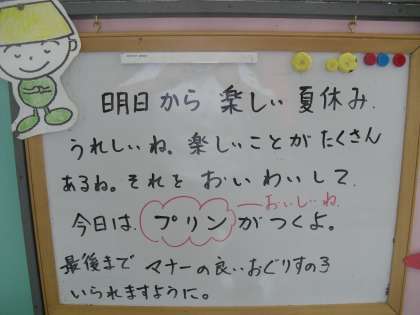 明日から 楽しい 夏休み.
うれしいね。楽しいことがたくさん
あるね。それを おいわいして
おいしいね
今日は. プリン がつくよ。
最後まで マナーの良いおぐりすの子
いられますように。